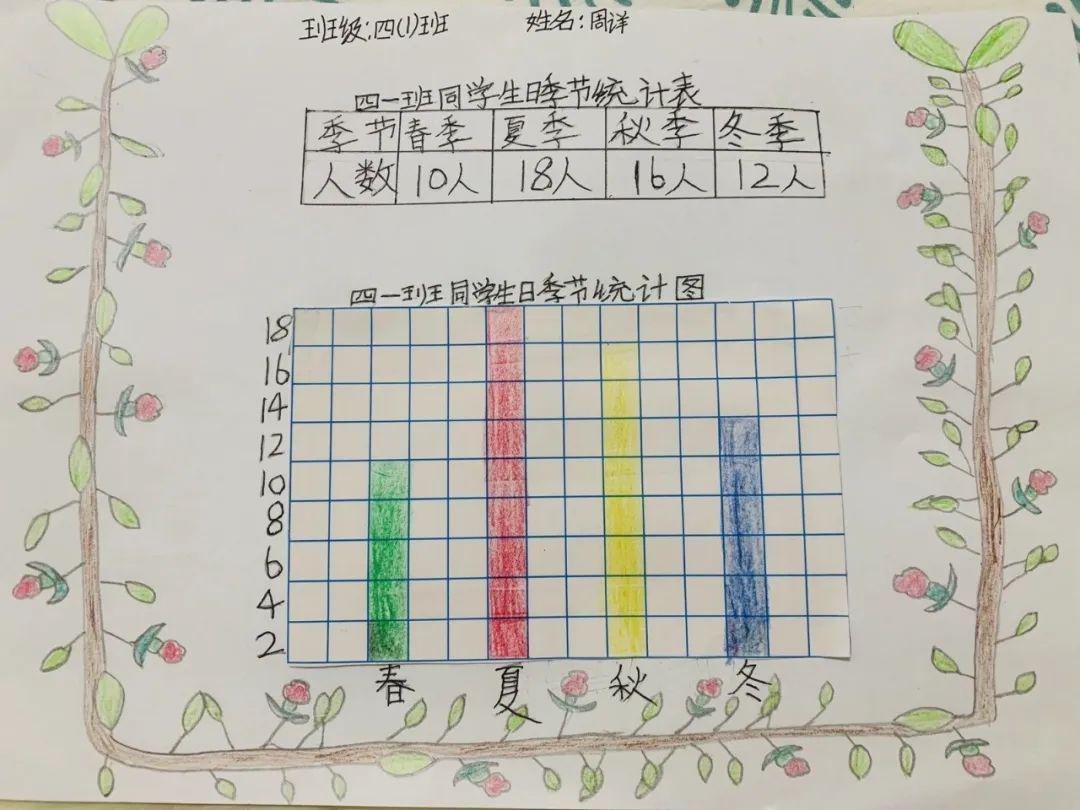 班级:四(1)班 姓名:周详
四一班同学生日季节统计表
季节 春季 夏季 秋季 冬季
人数 10人 18人 16人 12人
四一班同学生日季节统计图
18
16
14
12
10
8
6
4
2
春 夏 秋 冬